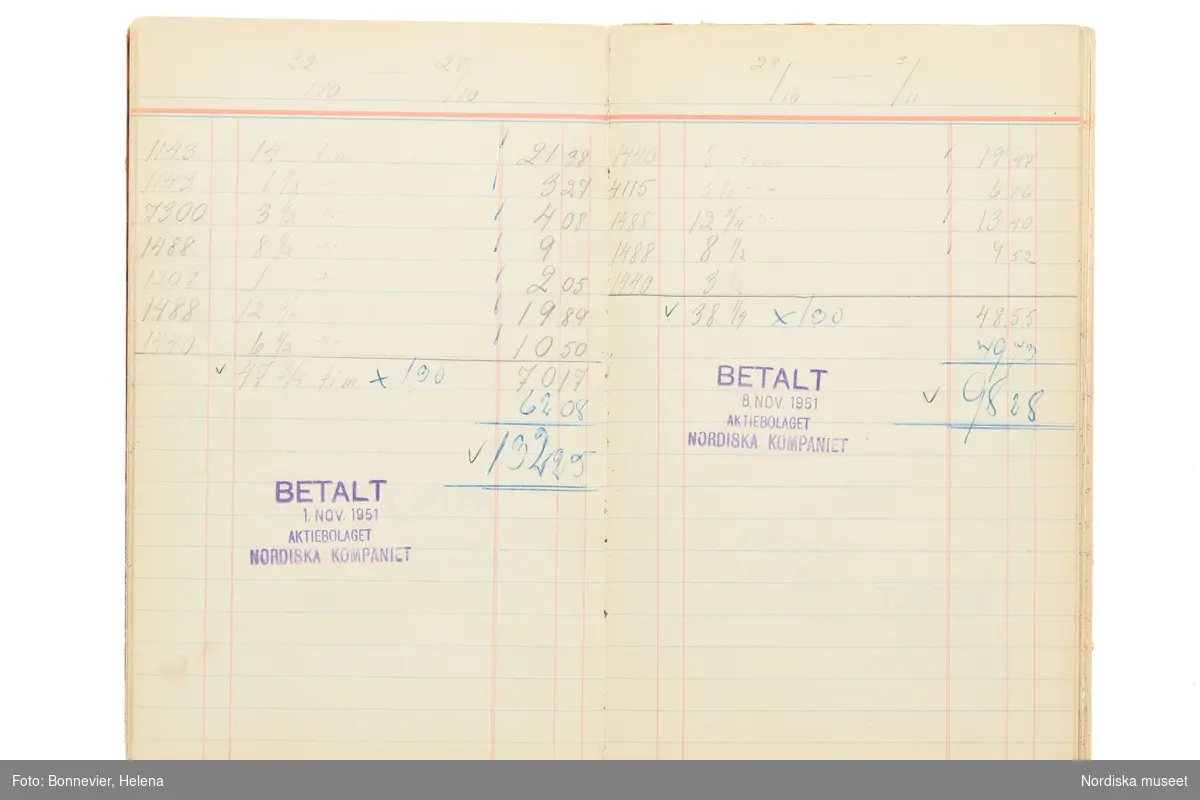 22/10 — 27/10
1143 14 tim 21 38
1143 1 1/2 -"- 3 27
7300 3 1/2 -"- 4 08
1488 8 1/2 -"- 9
1207 1 -"- 2 05
1488 12 19 89
1440 6 1/2 -"- 10 50
47 3/4 tim x 130 70,17
62 08
132,25
BETALT
1. NOV. 1951
AKTIEBOLAGET
NORDISKA KOMPANIET
29/10 — 3/11
1440 8 tim 19 47
4115 -"- 6
1488 12 3/4 -"- 13 40
1488 8 1/2 9 52
1440 3
38 1/4 x 130 48,55
49 73
98 28
BETALT
8. NOV. 1951
AKTIEBOLAGET
NORDISKA KOMPANIET
Foto: Bonnevier, Helena
Nordiska museet